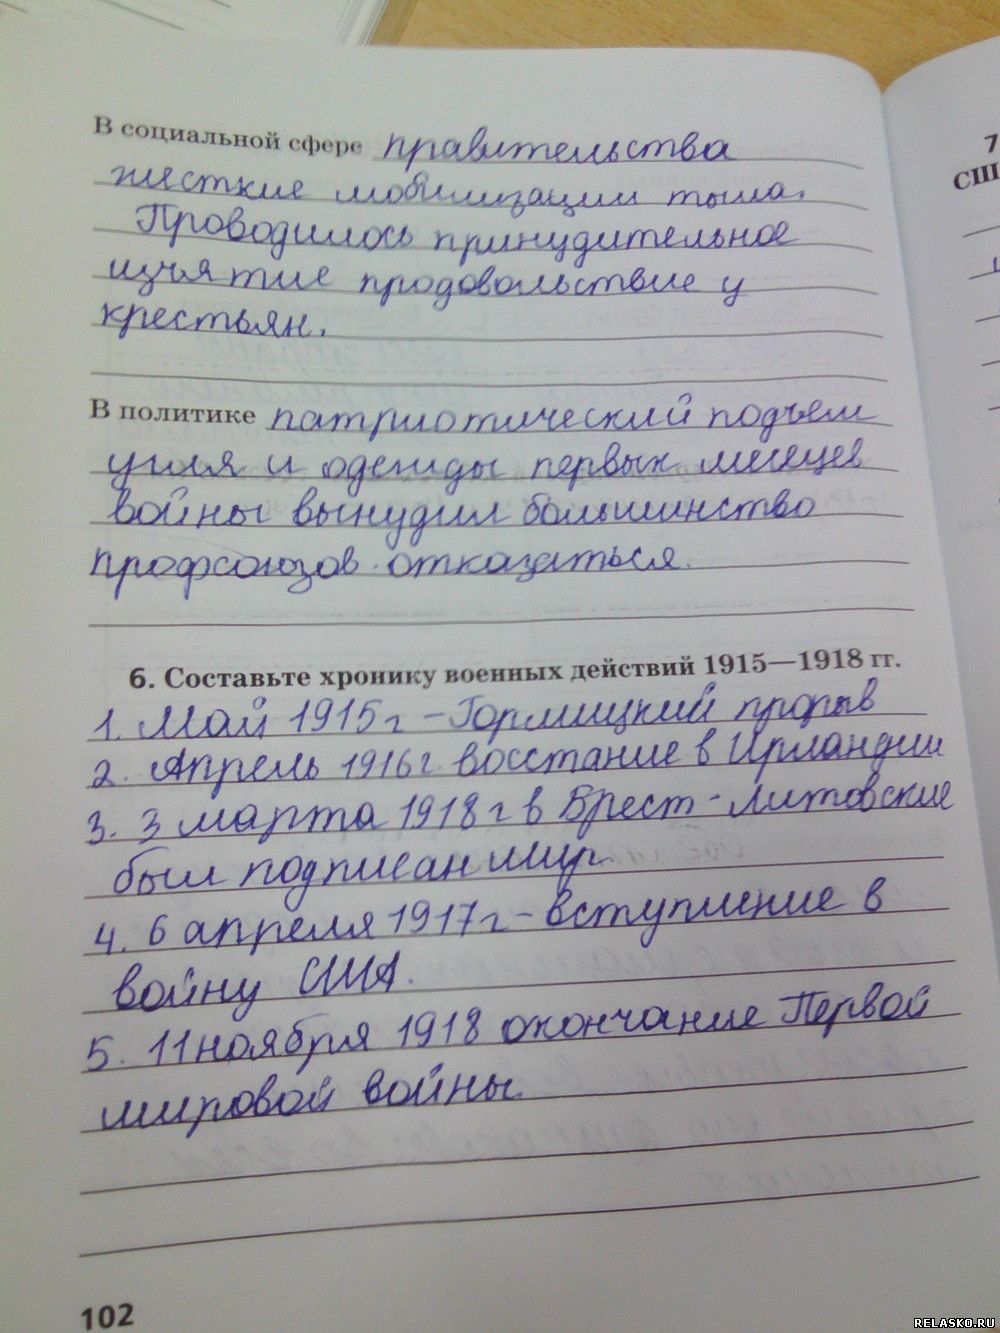 В социальной сфере правительства
жесткие мобилизации тыла.
Проводилось принудительное
изъятие продовольствие у
крестьян.
В политике патриотический подъем
угля и одежды первых месяцев
войны вынудил большинство
профсоюзов отказаться.
6. Составьте хронику военных действий 1915—1918 гг.
1. Май 1915 г - Гормицкий прорыв
2. Апрель 1916 г. восстание в Ирландии
3. 3 марта 1918 г в Брест-Литовские
был подписан мир.
4. 6 апреля 1917 г - вступление в
войну США.
5. 11 ноября 1918 окончание Первой
мировой войны.
102
7
СШ
RELASKO.RU